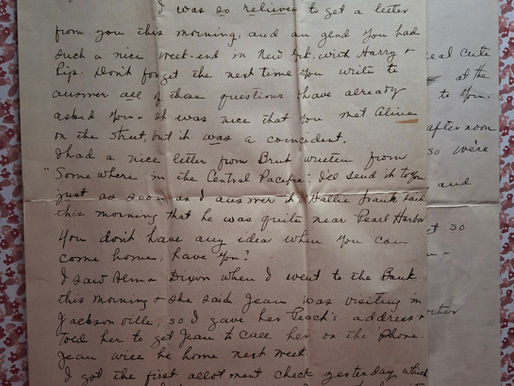 I was so relieved to get a letter
from you this morning, and am glad you had
such a nice week-end in New York, with Harry +
Pip. Don't forget the next time you write to
answer all of those questions I have already
asked you. It was nice that you met Aline
on the street, but it was a coincident.
I had a nice letter from Bruh written from
"Some where in the Central Pacific. I'll send it to you
just as soon as I answer it. Hallie Frank said
this morning that he was quite near Pearl Harbor
You don't have any idea when you can
come home, have you?
I saw Alma Dixon when I went to the Bank
this morning + she said Jean was visiting in
Jacksonville, so I gave her Peach's address +
told her to get Jean to call her on the phone.
Jean will be home next week.
I got the first allotment check yesterday, which
cute
at the
to you.
afternoon
so were
and
et so